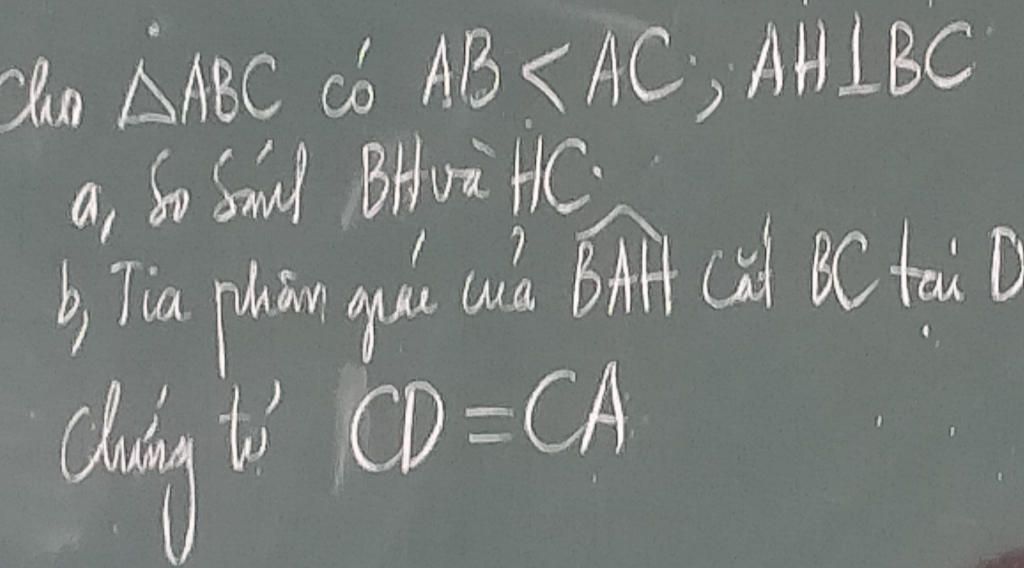 Cho △ABC có AB < AC; AH⊥BC
a, So sánh BH và HC.
b, Tia phân giác của \widehat{BAH} cắt BC tại D
Chứng tỏ CD = CA